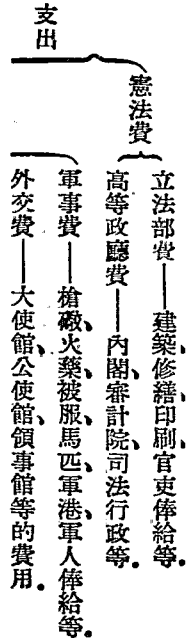 支出
憲法費
立法部費——建築、修繕、印刷、官吏俸給等。
高等政廳費——內閣、審計院、司法行政等。
軍事費——槍礮、火藥、被服、馬匹、軍港、軍人俸給等。
外交費——大使館、公使館、領事館等的費用。